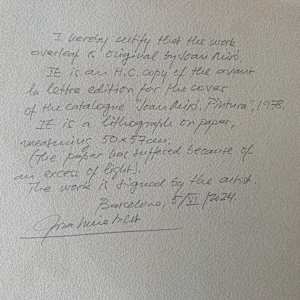 I hereby certify that the work
overleaf is original by Joan Miró.
It is an H.C. copy of the avant
la lettre edition for the cover
of the catalogue "Joan Miró, Pintura", 1978.
It is a lithograph on paper,
measuring 50 x 57 cm.
(The paper has suffered because of
an excess of light).
The work is signed by the artist.
Barcelona, 5/VI/2024.